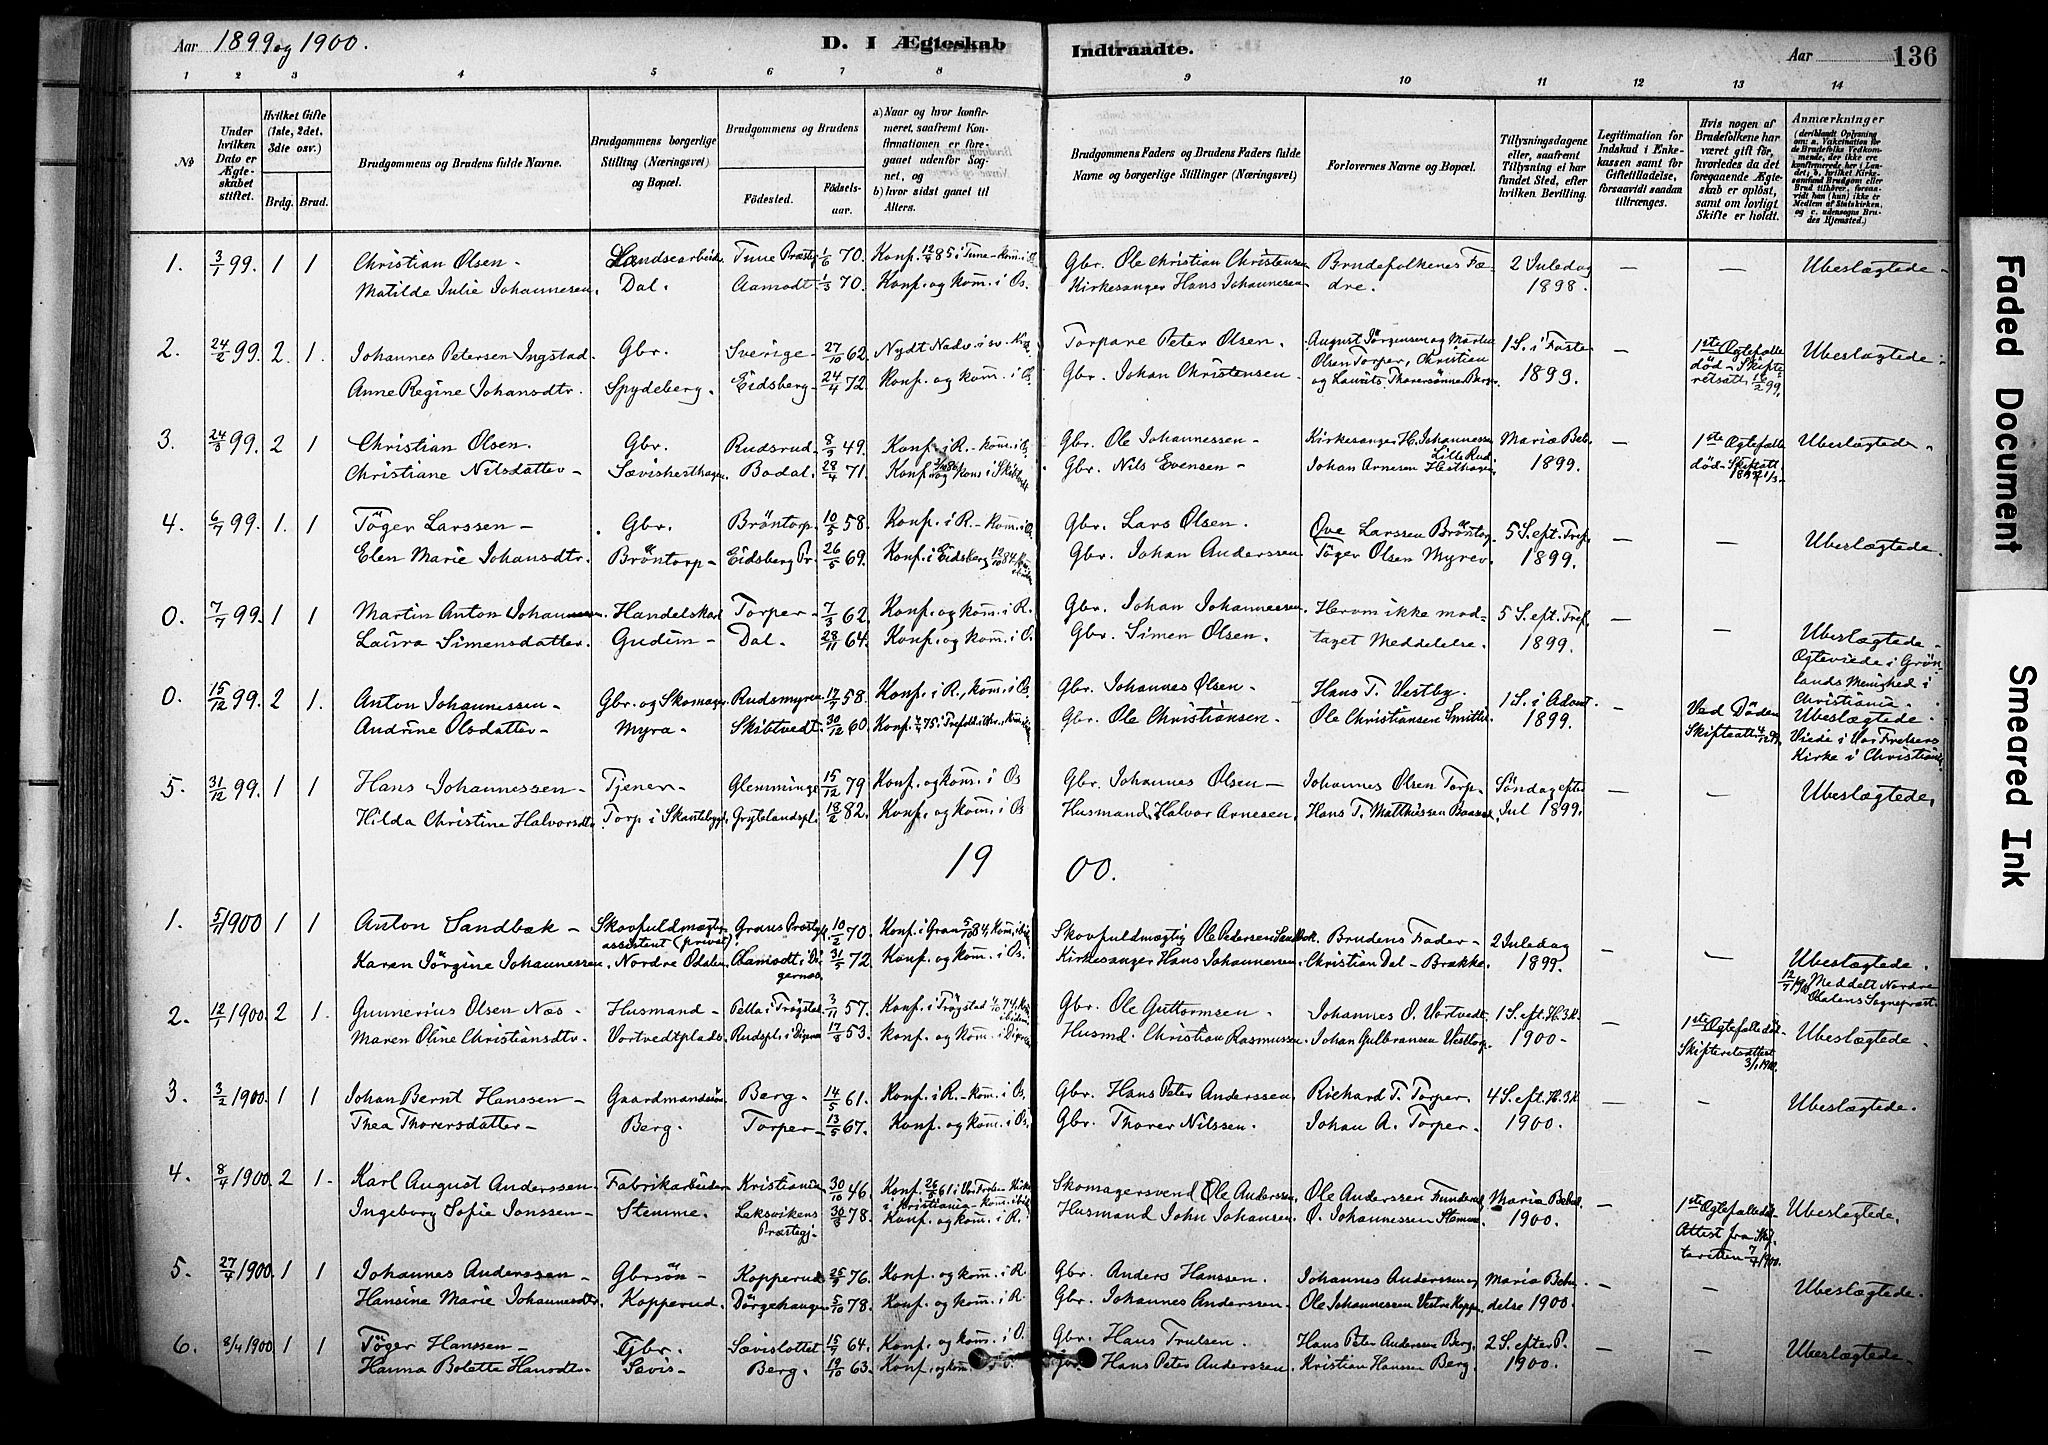 Aar 1899 og 1900.
D. I Ægteskab Indtraadte.
Aar
136
1 2 3 4 5 6 7 8 9 10 11 12 13 14
No
Under hvilken Dato er Ægteskabet stiftet.
Hvilket Gifte (1ste, 2det, 3die osv.)
Brdg. Brud.
Brudgommens og Brudens fulde Navne.
Brudgommens borgerlige Stilling (Næringsvei) og Bopæl.
Brudgommens og Brudens
Fødested.
Fødselsaar.
a) Naar og hvor konfirmeret, saafremt Konfirmationen er foregaaet udenfor Sognet, og
b) hvor sidst gaaet til Alters.
Brudgommens Faders og Brudens Faders fulde Navne og borgerlige Stillinger (Næringsvei)
Forlovernes Navne og Bopæl.
Tillysningsdagene eller, saafremt Tillysning ei har fundet Sted, efter hvilken Bevilling.
Legitimation for Indskud i Enkekassen samt for Giftetilladelse, forsaavidt saadan tiltrænges.
Hvis nogen af Brudefolkene har været gift før, hvorledes da det foregaaende Ægteskab er opløst, samt om lovligt Skifte er holdt.
Anmærkninger
(deriblandt Oplysning om: a. Vakcination for de Brudefolks Vedkommende, der ikke ere konfirmerede her i Landet, b. hvilket Kirkesamfund Brudgom eller Brud tilhører, forsaavidt han (hun) ikke er Medlem af Statskirken, og c. udensogns Brudes Hjemsted.)
1. 3/1 99. 1 1 Christian Olsen - Tune Præstg. 1/6 70. Konf. 12/4 85 i Tune - kom. i Ø. Gbr. Ole Christian Christensen Brudefolkenes Fæ- 2 Juledag — — Ubeslægtede -
Matilde Julie Johannesen. Dal. Aamodt 1/3 70. Konf. og kom. i Øs. Kirkesanger Hans Johannesen dre. 1898.
2. 24/2 99. 2. 1. Johannes Petersen Ingstad Gbr. Sverige 27/10 62. Torpare Peter Olsen. August Jörgensen og Morten 1 S. i Faste — 1ste Ægtefælle Ubeslægtede.
Anne Regine Johansdtr. Spydeberg. Eidsberg 24/4 72. Konf. og kom. i Øs. Gbr. Johan Christensen Olsen Torper, Christian og Laurits 1899. død - Skifteretsatt. 16/2 99.
3. 24/3 99. 2 1 Christian Olsen. Gbr. Rudsrud 8/9 49. Konf. i R. - kom. i Øs. Gbr. Ole Johannessen - Kirkesanger H. Johannessen Lille Rud Mariæ Beb. — 1ste Ægtefælle Ubeslægtede -
Christiane Nilsdatter Sævisherthagen Bodal. 28/4 71. Gbr. Nils Evensen - Johan Arnesen 1899. død -
4. 6/7 99. 1. 1 Töger Larssen - Gbr. Bröntorp 10/5 58. Konf. i R. - kom. i Ø. Gbr. Lars Olsen. Ove Larssen Bröntorp 5 S. eft. Tref. — Ubeslægtede.
Elen Marie Johansdtr. Bröntorp - Eidsberg Pr. 26/5 69. Konf. i Eidsberg 12/10 84 Gbr. Johan Anderssen Töger Olsen Myrer 1899.
0. 7/7 99. 1 1 Martin Anton Johannessen Handelskarl Torper - 7/3 62. Konf. og kom. i R. Gbr. Johan Johannessen Herom ikke mod- 5 S. eft. Tref. — — Ubeslægtede -
Laura Simensdatter. Gudim - Dal. 28/11 64. Konf. og kom. i Ø. Gbr. Simen Olsen. taget Meddelelse. 1899. Ægteviede i Grönlands Menighed i Christiania.
0. 15/12 99. 2 1. Anton Johannessen - Gbr. og Skomager Rudsmyren 17/7 58. Konf. i R., kom. i Øs. Gbr. Johannes Olsen - Hans T. Vestby. 1 S. i Advent — Ved Døden Ubeslægtede.
Andrine Olsdatter - Myra - Skibtvedt 30/12 60 Gbr. Ole Christiansen - Ole Christiansen 1899. Skifteatt. Viede i Vor Frelsers Kirke i Christiania
5. 31/12 99. 1 1 Hans Johannessen - Tjener - Glemminge 15/12 79 Konf. og kom. i Øs Gbr. Johannes Olsen - Johannes Olsen Torp - Söndag efter — — Ubeslægtede.
Hilda Christine Halvorsdtr. Torp i Skantebygd Grytelandspl. 18/2 82. Konf. og kom. i Øs Husmand Halvor Arnesen Hans T. Matthissen Jul 1899.
1900.
1. 5/1 1900 1 1 Anton Sandbæk - Skovfuldmægtig assistent (privat) Grans Præstegj. 10/2 70. Konf. i Gran 5/10 84, Skovfuldmægtig Ole Pedersen Sandbæk. Brudens Fader - 2 Juledag — — Ubeslægtede.
Karen Jörgine Johannessen. Nordre Odalen. Aamodt i Degernæs 31/5 72. Konf. og kom. i Øs. Kirkesanger Hans Johannesen. Christian Dal - Brække. 1899. 12/1 1900 Meddelt Nordre Odalens Sognepræst
2. 12/1 1900 2 1. Gunnerius Olsen Næs - Husmand - i Trögstad 3/11 57. Konf. i Trögstad Gbr. Ole Guttormsen - Johannes O. Vortvedt 1 S. eft. H. 3 K. — 1ste Ægtefælle død. Ubeslægtede.
Maren Oline Christiansdtr. Vortvedtplads. Rudspl. i 17/8 53. Konf. og kom. i Husmd. Christian Rasmussen Johan Gulbransen Vesttorp. 1900 - Skifteretsattest 3/1 1900.
3. 3/2 1900. 1 1 Johan Bernt Hanssen - Gaardmandssön Berg - 14/5 61. Konf. i R. - kom. i Øs. Gbr. Hans Peter Anderssen Richard T. Torper. 4 S. eft. H. 3 K — - Ubeslægtede.
Thea Thorersdatter - Berg. Torper - 13/5 67. Konf. og kom. i Øs. Gbr. Thorer Nilssen. Johan A. Torper - 1900.
4. 8/4 1900. 2 1. Karl August Anderssen. Fabrikarbeider Kristiania 30/10 46. Konf. 26/5 61 i Vor Frelsers Kirke i Kristiania - Skomagersvend Ole Anderssen. Ole Anderssen Mariæ Bebud. — 1ste Ægtefælle død. Ubeslægtede.
Ingeborg Sofie Jonssen - Stemme. Leksvikens Præstegj. 30/8 78. Konf. og kom. i R. Husmand John Johansen O. Johannessen Stemme 1900. Attest fra Skifteretten 7/4 1900.
5. 27/4 1900. 1 1 Johannes Anderssen - Gbrsön - Kopperud 25/9 76. Konf. og kom. i R. Gbr. Anders Hanssen. Johannes Anderssen og Mariæ Bebu- — - Ubeslægtede.
Hansine Marie Johannesdtr. Kopperud. Dörgehaugen 5/10 78. Konf. og kom. i R. Gbr. Johannes Anderssen. Ole Johannessen Vestre Kopp. delse 1900.
6. 8/4 1900 1 1 Töger Hanssen - Gbr. Sævislottet 15/7 64. Konf. og kom. i Ø. Gbr. Hans Trulsen. Hans Peter Andersen Berg. 2 S. efter P. — — Ubeslægtede.
Hanna Bolette Hansdtr. Sævis - Berg. 19/10 63. Konf. og kom. Gbr. Hans Peter Anderssen. Kristian Hanssen Berg. 1900.
Faded Document
Smeared Ink